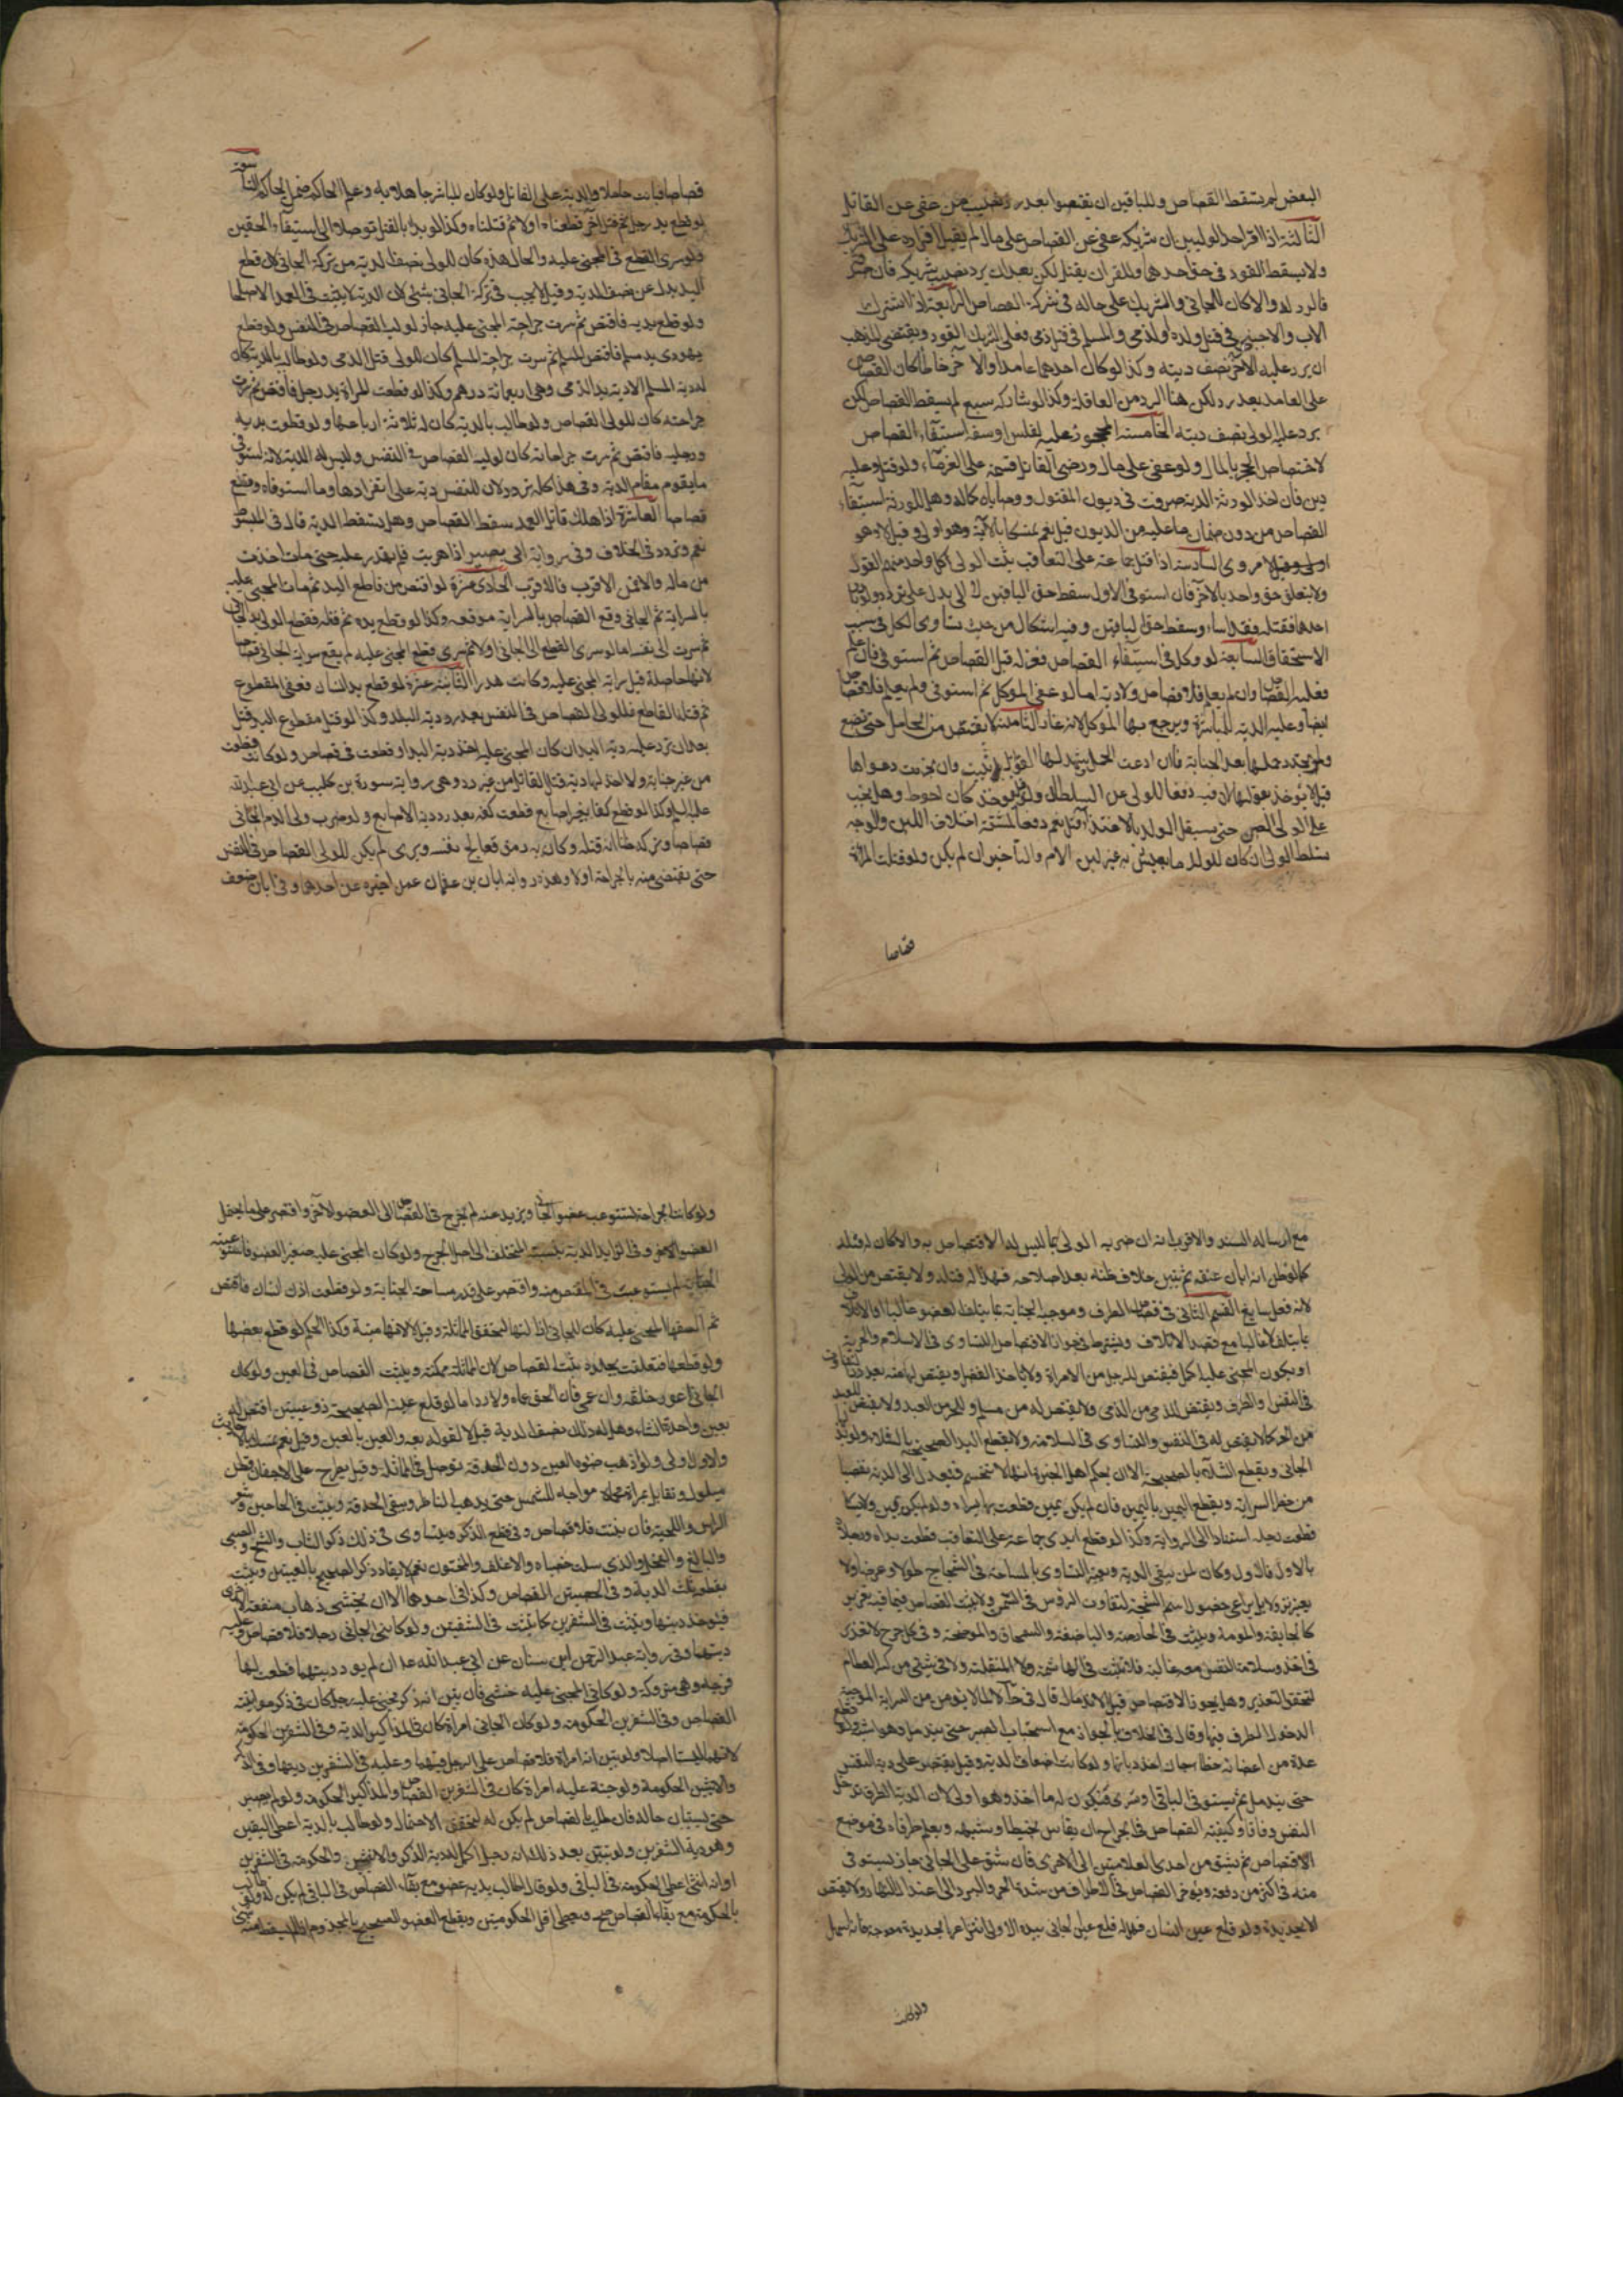 البعض لم يسقط القصاص وللباقين ان يقتصوا بعد رد نصيب من عفى عن القاتل
الثالثة اذا اقر احد الوليين ان شريكه عفى عن القصاص على مال لم يقبل اقراره على الشريك
ولا يسقط القود في حق احدهما وللمقر ان يقتل لكن بعد ان يرد نصيب شريكه فان صدقه
فالرد له والا كان للجاني والشريك على حاله في شركة القصاص الرابعة اذا اشترك
الاب والاجنبي في قتل ولده او المسلم والذمي في قتل ذمي فعلى الشريك القود ويقتضي المذهب
ان يرد عليه الاخر نصف ديته وكذا لو كان احدهما عامدا والاخر خاطئا كان القصاص
على العامد بعد رد لكن هنا الرد من العاقلة وكذا لو شاركه سبع لم يسقط القصاص لكن
يرد عليه الولي نصف ديته الخامسة المحجور عليه لفلس او سفه استيفاء القصاص
لاختصاص الحجر بالمال ولو عفى على مال ورضى القاتل قسمه على الغرماء ولو قتل وعليه
دين فان اخذ الورثة الدية صرفت في ديون المقتول ووصاياه كماله وهل للورثة استيفاء
القصاص من دون ضمان ما عليه من الديون قيل نعم تمسكا بالآية وهو اولى وقيل لا وهو
مروي السادسة اذا قتل جماعة على التعاقب يثبت لولي كل واحد منهم القود
ولا يتعلق حق واحد بالآخر فان استوفى الاول سقط حق الباقين لا الى بدل على تردد ولو بادر
احدهم فقتله فقد اساء وسقط حق الباقين وفيه اشكال من حيث تساوي الكل في سبب
الاستحقاق السابعة لو وكل في استيفاء القصاص فعزله قبل القصاص ثم استوفى فان علم
فعليه القصاص وان لم يعلم فلا قصاص ولا دية اما لو عفى الموكل ثم استوفى ولم يعلم فلا قصاص
ايضا وعليه الدية للمباشرة ويرجع بها على الموكل لانه غار الثامنة لا يقتص من الحامل حتى تضع
ولو تجدد حملها بعد الجناية فان ادعت الحمل وشهد لها القوابل ثبت وان تجردت دعواها
قيل لا يؤخذ بقولها لان فيه دفعا للولي عن السلطان ولو قيل يؤخذ كان احوط وهل يجب
على الولي الصبر حتى يستقل الولد بالاغتذاء قيل نعم دفعا لمشقة اختلاف اللبن والوجه
تسلط الولي ان كان للولد ما يعيش به غير لبن الام والتأخير ان لم يكن ولو قتلت المرأة
قصاصا
قصاصا فبانت حاملا فالدية على القاتل ولو كان المباشر جاهلا به وعلم الحاكم ضمن الحاكم التاسعة
لو قطع يد رجل ثم قتل اخر قطعناه اولا ثم قتلناه وكذا لو بدأ بالقتل توصلا الى استيفاء الحقين
ولو سرى القطع في المجني عليه والحال هذه كان للولي نصف الدية من تركة الجاني لان قطع
اليد بدل عن نصف الدية وقيل لا يجب في تركة الجاني شئ لان الدية لا يثبت في العمد الا صلحا
ولو قطع يديه فاقتص ثم سرت جراحة المجني عليه جاز لوليه القصاص في النفس ولو قطع
يهودي يد مسلم فاقتص المسلم ثم سرت جراحة المسلم كان للولي قتل الذمي ولو طالب بالدية كان
له دية المسلم الا دية يد الذمي وهي اربعمائة درهم وكذا لو قطعت المرأة يد رجل فاقتص ثم سرت
جراحته كان للولي القصاص ولو طالب بالدية كان له ثلاثة ارباعها ولو قطعت يديه
ورجليه فاقتص ثم سرت جراحاته كان لوليه القصاص في النفس وليس له الدية لانه استوفى
ما يقوم مقام الدية وفي هذا كله تردد لان للنفس دية على انفرادها وما استوفاه وقع
قصاصا العاشرة اذا هلك قاتل العمد سقط القصاص وهل تسقط الدية قال في المبسوط
نعم وتردد في الخلاف وفي رواية ابي بصير اذا هرب فلم يقدر عليه حتى مات اخذت
من ماله والا فمن الاقرب فالاقرب الحادي عشرة لو اقتص من قاطع اليد ثم مات المجني عليه
بالسراية ثم الجاني وقع القصاص بالسراية موقعه وكذا لو قطع يده ثم قتله فقطع الولي يد الجاني
ثم سرت الى نفسه اما لو سرى القطع الى الجاني اولا ثم سرى قطع المجني عليه لم يقع سراية الجاني قصاصا
لانها حاصلة قبل سراية المجني عليه وكانت هدرا الثانية عشرة لو قطع يد انسان فعفى المقطوع
ثم قتله القاطع فللولي القصاص في النفس بعد رد دية اليد وكذا لو قتل مقطوع اليد قتل
بعد ان ترد عليه دية اليد ان كان المجني عليه اخذ دية اليد او قطعت في قصاص ولو كانت قطعت
من غير جناية ولا اخذ لها دية قتل القاتل من غير رد وهي رواية سورة بن كليب عن ابي عبد الله
عليه السلم وكذا لو قطع كفا بغير اصابع قطعت كفه بعد رد دية الاصابع ولو ضرب ولي الدم الجاني
قصاصا وتركه ظنا انه قتله وكان به رمق فعالج نفسه وبرئ لم يكن للولي القصاص في النفس
حتى يقتص منه بالجراحة اولا وهذه رواية ابان بن عثمان عمن اخبره عن احدهما وفي ابان ضعف
مع ارساله السند والاقرب انه ان ضربه الولي بما ليس له الاقتصاص به والا كان له قتله
كما لو ظن انه ابان عنقه ثم تبين خلاف ظنه بعد اصلاحه فهذا له قتله ولا يقتص من الولي
لانه فعل سايغ القسم الثاني في قصاص الطرف وموجبه الجناية بما يتلف العضو غالبا او الاتلاف
بما يتلف لا غالبا مع قصد الاتلاف ويشترط في جواز الاقتصاص التساوي في الاسلام والحرية
او يكون المجني عليه اكمل فيقتص للرجل من الامرأة ولا يأخذ الفضل ويقتص لها منه بعد رد التفاوت
في النفس والطرف ويقتص للذمي من الذمي ولا يقتص له من مسلم وللحر من العبد ولا يقتص للعبد
من الحر كما لا يقتص له في النفس والتساوي في السلامة ولا يقطع اليد الصحيحة بالشلاء ولو بذل
الجاني ويقطع الشلاء بالصحيحة الا ان يحكم اهل الخبرة انها لا تنحسم فيعدل الى الدية تفصيا
من خطر السراية ويقطع اليمين باليمين فان لم يكن يمين قطعت بها يسراه ولو لم يكن يمين ولا يسار
قطعت رجله استنادا الى الرواية وكذا لو قطع ايدي جماعة على التعاقب قطعت يداه ورجلاه
بالاول فالاول وكان لمن يبقى الدية ويعتبر التساوي بالمساحة في الشجاج طولا وعرضا ولا
يعتبر نزولا بل يراعى حصول اسم الشجة لتفاوت الرؤس في السمن ولا يثبت القصاص فيما فيه تغرير
كالجايفة والمأمومة ويثبت في الحارصة والباضعة والسمحاق والموضحة وفي كل جرح لا تغرير
في اخذه وسلامة النفس معه غالبة فلا يثبت في الهاشمة ولا المنقلة ولا في شئ من كسر العظام
لتحقق التعذير وهل يجوز الاقتصاص قبل الاندمال قال في لا لما لا يؤمن من السراية الموجبة
لدخول الطرف فيها وقال في الخلاف بالجواز مع استحباب الصبر حتى يندمل وهو اشبه ولو قطع
عدة من اعضائه خطأ جاز اخذ دياتها ولو كانت اضعاف الدية وقيل يقتصر على دية النفس
حتى يندمل ثم يستوفي الباقي او يسري فيكون له ما اخذ وهو اولى لان الدية الطرف تدخل
النفس وفاقا وكيفية القصاص في الجراح ان يقاس بخيط او شبهه ويعلم طرفاه في موضع
الاقتصاص ثم يشق من احدى العلامتين الى الاخرى فان شق على الجاني جاز ان يستوفى
منه في اكثر من دفعة ويؤخر القصاص في الاطراف من شدة الحر والبرد الى اعتدال النهار ولا يقتص
الا بحديدة ولو قلع عين انسان فهل له قلع عين الجاني بيده الاولى انتزاعها بحديدة معوجة فانه اسهل
ولو كانت
ولو كانت الجراحة تستوعب عضو الجاني ويزيد عنه لم يخرج في القصاص الى العضو الاخر واقتصر على ما يحتمل
العضو الاصغر وفي الزايد الدية بنسبة المتخلف الى اصل الجرح ولو كان المجني عليه صغير العضو فاستوعبته
الجناية لم يستوعب في المقتص منه واقتصر على قدر مساحة الجناية ولو قطعت اذن انسان فاقتص
ثم الصقها المجني عليه كان للجاني ازالتها ليتحقق المماثلة وقيل لا لانها ميتة وكذا الحكم لو قطع بعضها
ولو قطعها فتعلقت بجلدة يثبت القصاص لان المماثلة ممكنة ويثبت القصاص في العين ولو كان
الجاني اعور خلقة وان عمي فان الحق اعماه ولا رد اما لو قلع عينه الصحيحة ذو عينين اقتص له
بعين واحدة ان شاء وهل له مع ذلك نصف الدية قيل لا لقوله تعه والعين بالعين وقيل نعم تمسكا بالاحاديث
والاول اولى ولو اذهب ضوء العين دون الحدقة توصل في المماثلة وقيل يطرح على الاجفان قطن
مبلول ويقابل بمرآة محماة مواجهة للشمس حتى يذهب الناظر ويبقى الحدقة ويثبت في الحاجبين وشعر
الراس واللحية فان نبتت فلا قصاص وفي قطع الذكر ويتساوى في ذلك ذكر الشاب والشيخ والصبي
والبالغ والفحل والذي سلت خصياه والاغلف والمختون نعم لا يقاد ذكر الصحيح بالعنين ويثبت
بقطعه ثلث الدية وفي الخصيتين القصاص وكذا في احدهما الا ان يخشى ذهاب منفعة الاخرى
فيؤخذ ديتها ويثبت في الشفرين كما يثبت في الشفتين ولو كان الجاني رجلا فلا قصاص وعليه
ديتها وفي رواية عبد الرحمن ابن سنان عن ابي عبد الله ع ان لم يؤد ديتها قطعت لها
فرجه وهي متروكة ولو كان المجني عليه خنثى فان تبين انه ذكر فجنى عليه رجل كان في ذكره وانثييه
القصاص وفي الشفرين الحكومة ولو كان الجاني امرأة كان في المذاكير الدية وفي الشفرين الحكومة
لانهما ليستا اصلا ولو تبين انه امرأة فلا قصاص على الرجل فيهما وعليه في الشفرين ديتها وفي الذكر
والانثيين الحكومة ولو جنت عليه امرأة كان في الشفرين القصاص والمذاكير الحكومة ولو لم يصبر
حتى يستبان حاله فان طالب بالقصاص لم يكن له لتحقق الاحتمال ولو طالب بالدية اعطي اليقين
وهو دية الشفرين ولو تبين بعد ذلك انه رجل اكمل له دية الذكر والانثيين والحكومة في الشفرين
او انه انثى اعطي الحكومة في الباقي ولو قال اطالب بدية عضو مع بقاء القصاص في الباقي لم يكن له ولو طالب
بالحكومة مع بقاء القصاص صح ويعطى اقل الحكومتين ويقطع العضو الصحيح بالمجذوم اذا لم يسقط منه شئ